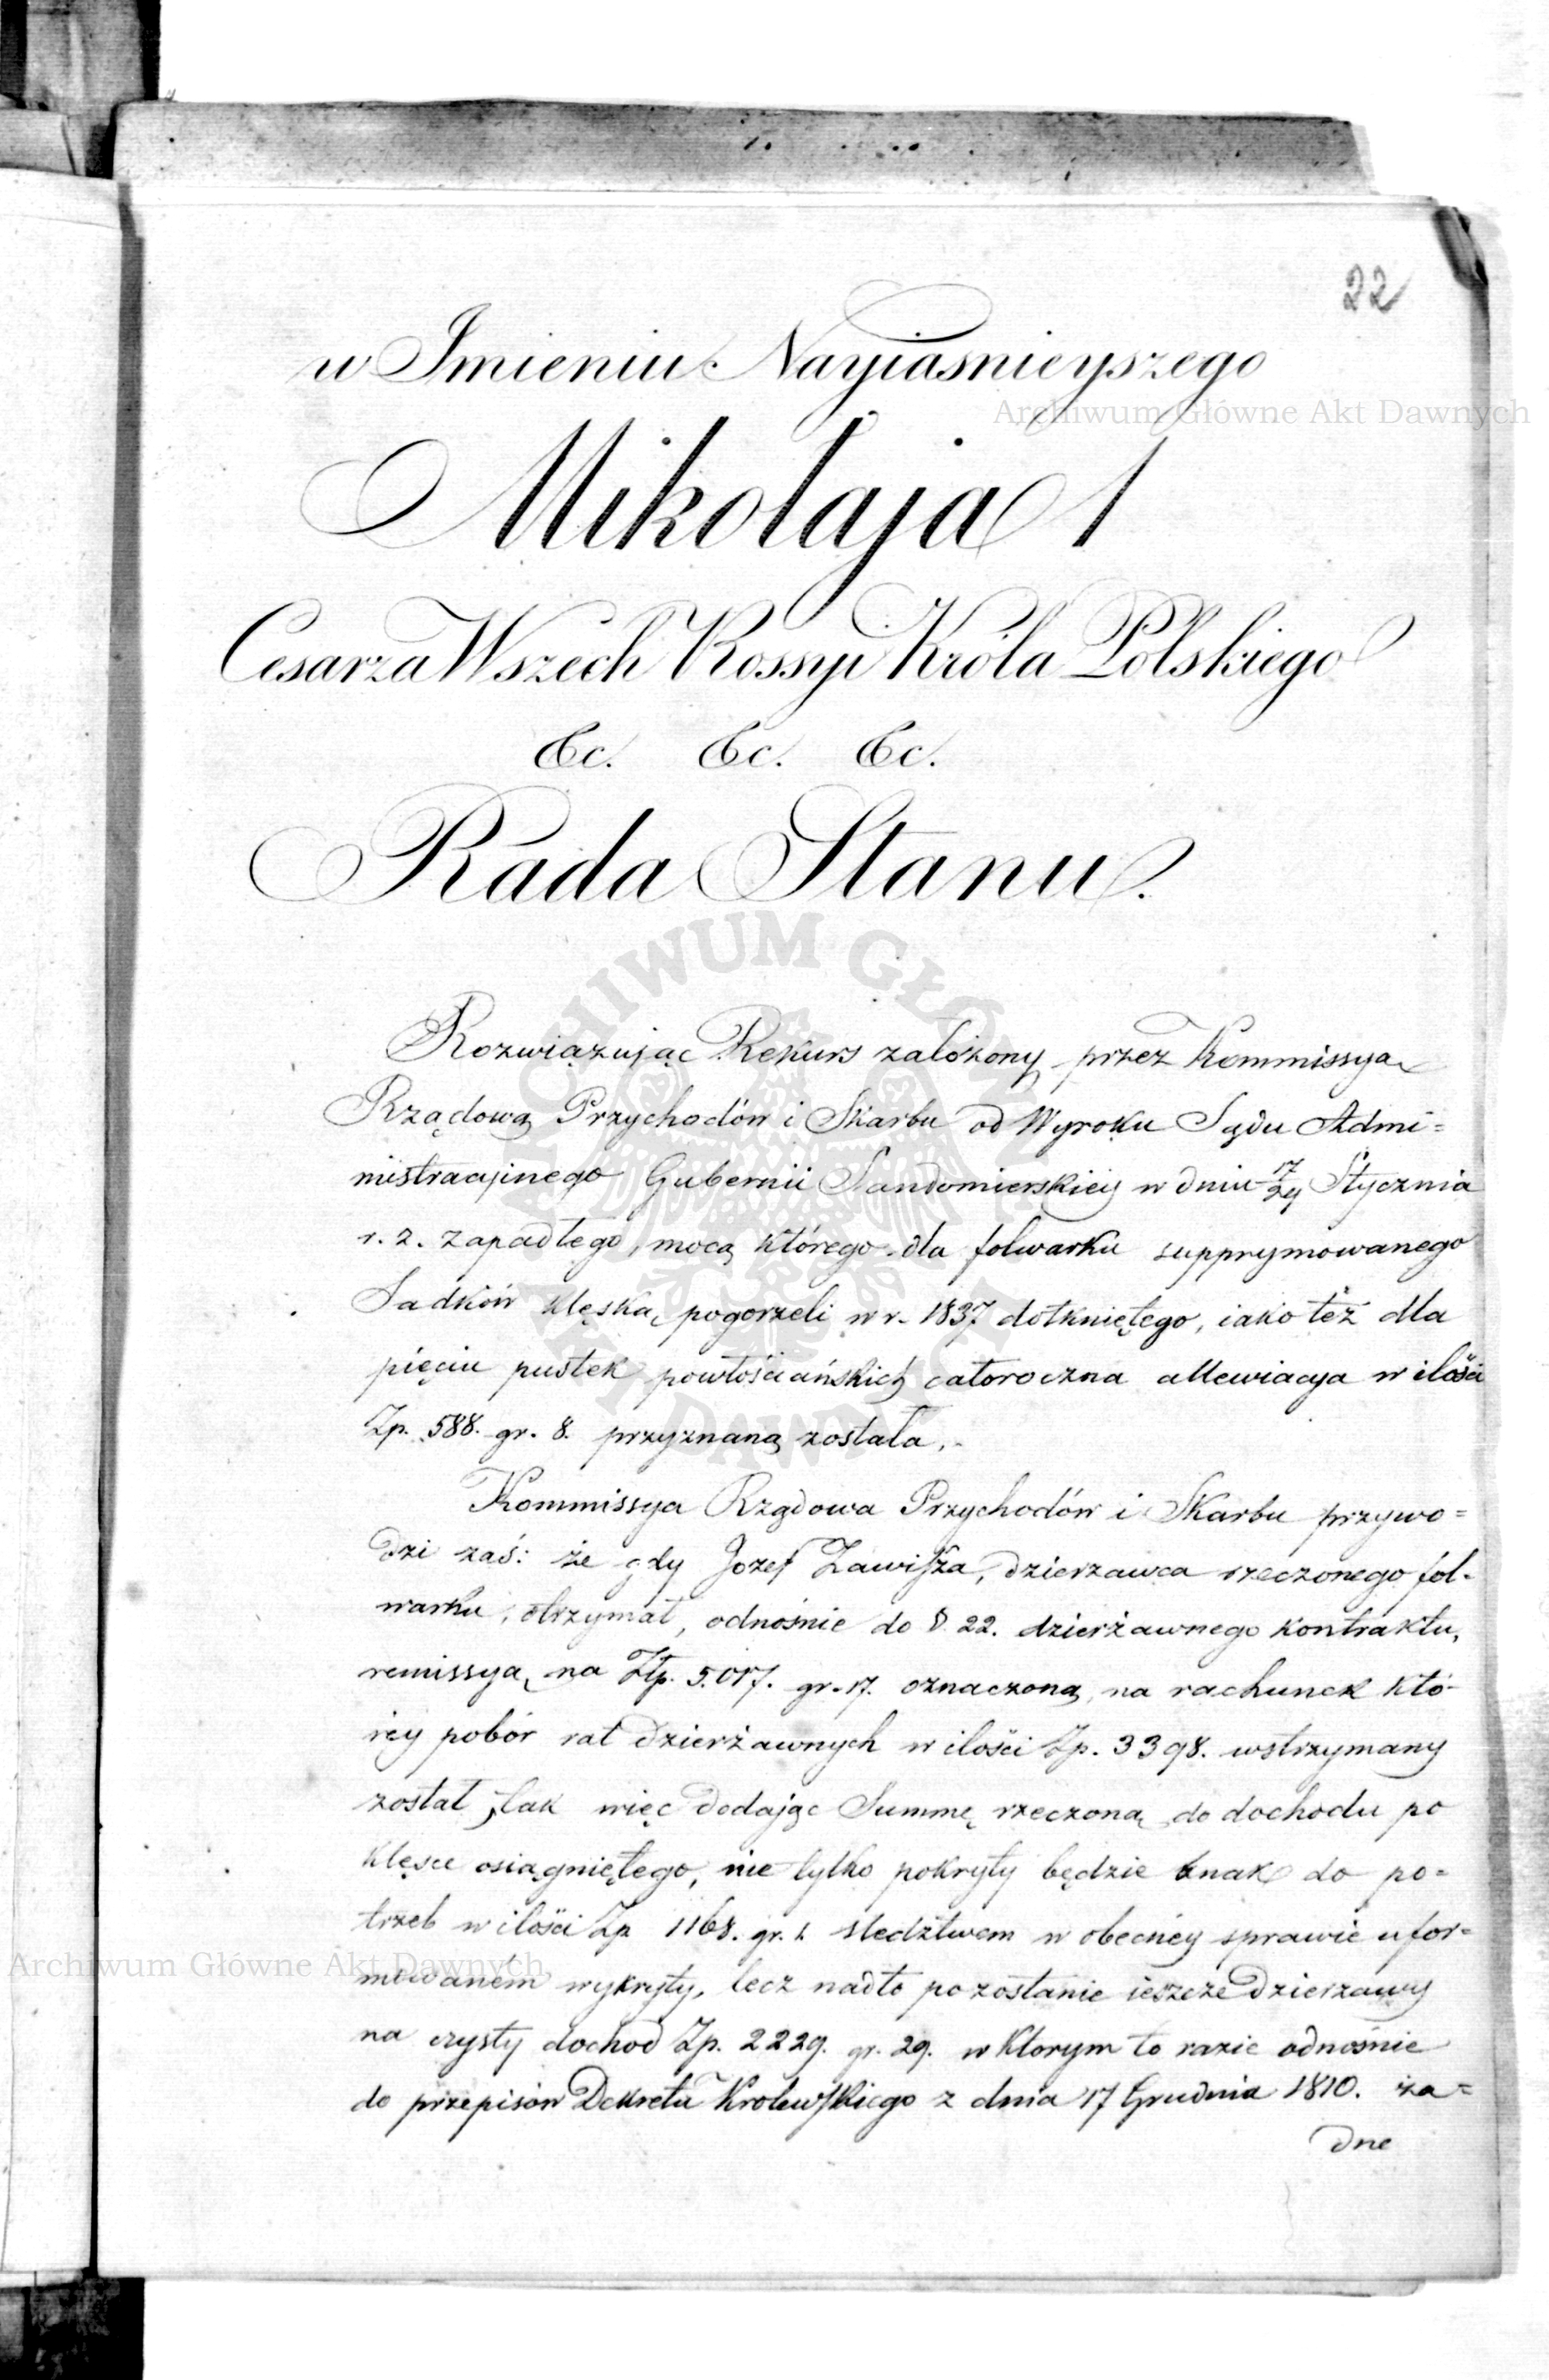 22
w Imieniu Nayiaśnieyszego
Archiwum Główne Akt Dawnych
Mikołaja 1
Cesarza Wszech Rossyi Króla Polskiego
&c. &c. &c.
Rada Stanu.
ARCHIWUM GŁÓWNE AKT DAWNYCH
Rozwiązując Rekurs założony przez Kommissyą
Rządową Przychodów i Skarbu od Wyroku Sądu Admi=
nistracyjnego Gubernii Sandomierskiey w dniu Stycznia
r. z. zapadłego, mocą którego dla folwarku supprymowanego
Sadków klęską pogorzeli w r. 1837 dotkniętego, iako też dla
pięciu pustek powłościańskich całoroczna allewiacya w ilości
Zp. 588. gr. 8. przyznaną została.
Kommissya Rządowa Przychodów i Skarbu przywo=
dzi zaś: że gdy Jozef Zawisza, dzierzawca rzeczonego fol-
warku, otrzymał, odnośnie do § 22. dzierżawnego kontraktu,
remissyą na Ztp. 5.017. gr. 17. oznaczoną, na rachunek któ-
rey pobór rat dzierżawnych w ilości Zp. 3398. wstrzymany
został, tak więc dodając Summę rzeczoną do dochodu po
klęsce osiągniętego, nie tylko pokryty będzie brak do po=
trzeb w ilości Zp. 1168. gr. 1. śledztwem w obecney sprawie ufor=
Archiwum Główne Akt Dawnych
mowanem wykryty, lecz nadto pozostanie ieszcze Dzierzawy
na czysty dochod Zp. 2229. gr. 29. w ktorym to razie odnośnie
do przepisów Dekretu Krolewskiego z dnia 17 Grudnia 1810. ża=
dne